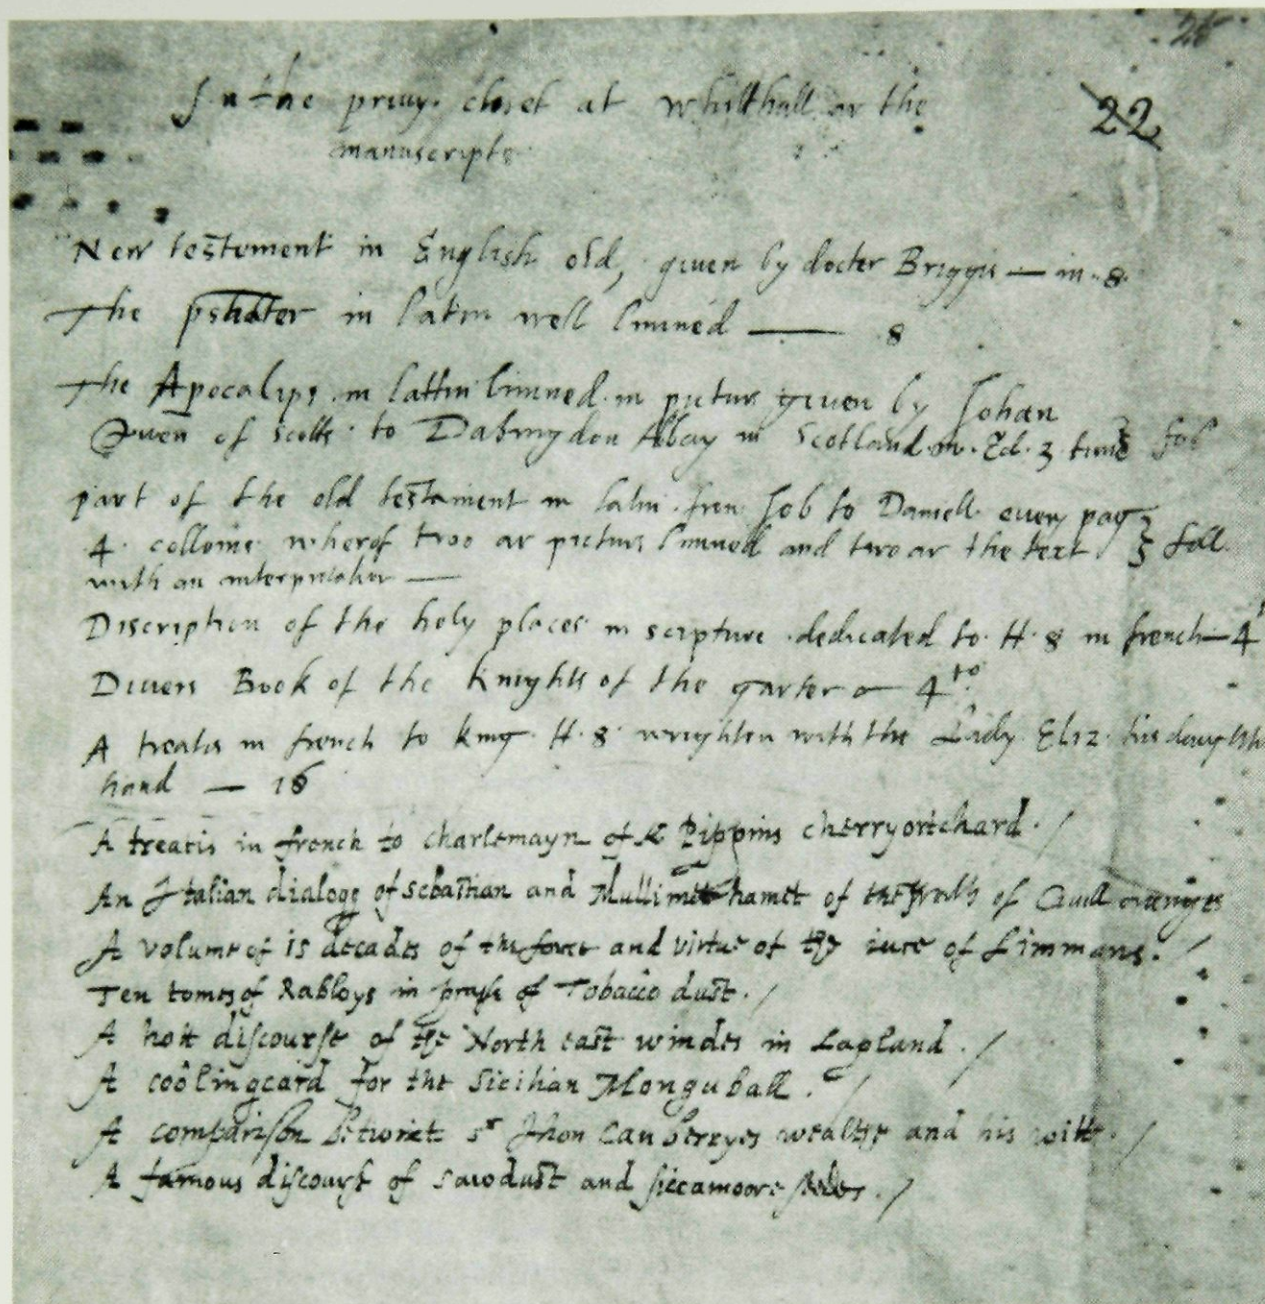 26
In the privy closet at whithall ar the
22
manuscripts
New testement in English old, giuen by docter Briggis — in 8
The psalter in latin well limned — 8
The Apocalips in lattin limned in pictur giuen by Johan
Quen of Scotts to Dabingdon Abbay in Scotland in Ed. 3 time fol
part of the old testament in latin from Job to Daniell euery pag
4 collome wherof two ar pictur limned and two ar the text foll
with an interpritation —
Discription of the holy places in scripture dedicated to H 8 in french — 4
Diuers Book of the knights of the garter — 4to
A treatis in french to king H 8 wrighten with the Lady Eliz his daughter
hand — 16
A treatis in french to charlemayn of K Pippins cherryortchard. /
An Italian dialoge of sebastian and Mulli hamet of the of Ciuill orenges
A volume of 15 decades of the force and virtue of the iuce of Limmans. /
Ten tomes of Rabloys in prayse of Tobacco dust. /
A hott discourse of the North east windes in Lapland. /
A coolingcard for the Sicilian Monguball. /
A comparison betwixt sr Jhon Canberryes wealthe and his witt. /
A famous discours of sawdust and siccamoore /